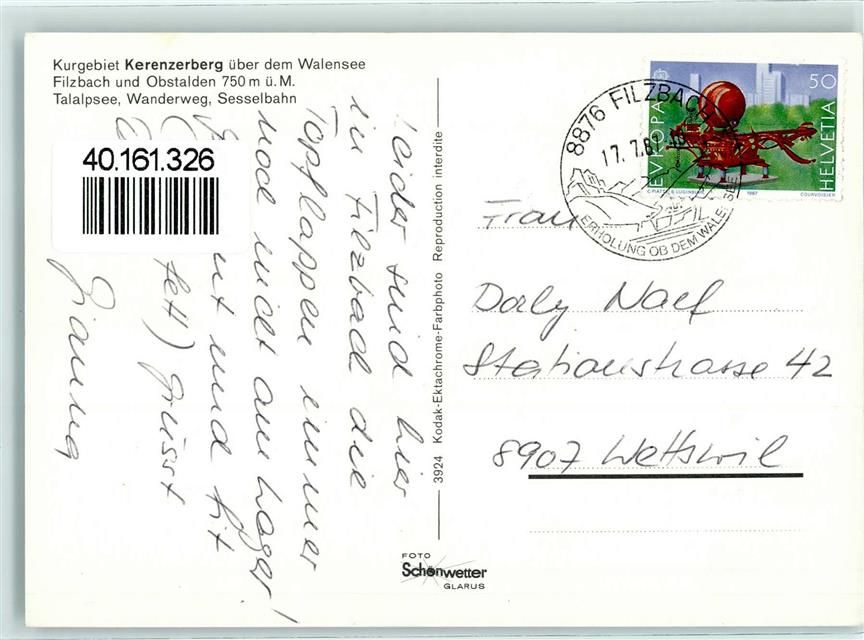 Kurgebiet Kerenzerberg über dem Walensee
Filzbach und Obstalden 750 m ü. M.
Talalpsee, Wanderweg, Sesselbahn
40.161.326
Leider sind hier
in Filzbach die
Topflappen immer
noch nicht am Lager!
und fit
fett) grüsst
3924 Kodak-Ektachrome-Farbphoto Reproduction interdite
FOTO
Schönwetter
GLARUS
8876 FILZBACH
17. 7.87
ERHOLUNG OB DEM WALENSEE
EUROPA
50
HELVETIA
1987
COURVOISIER
Frau
Dorly Naef
Stationsstrasse 42
8907 Wettswil